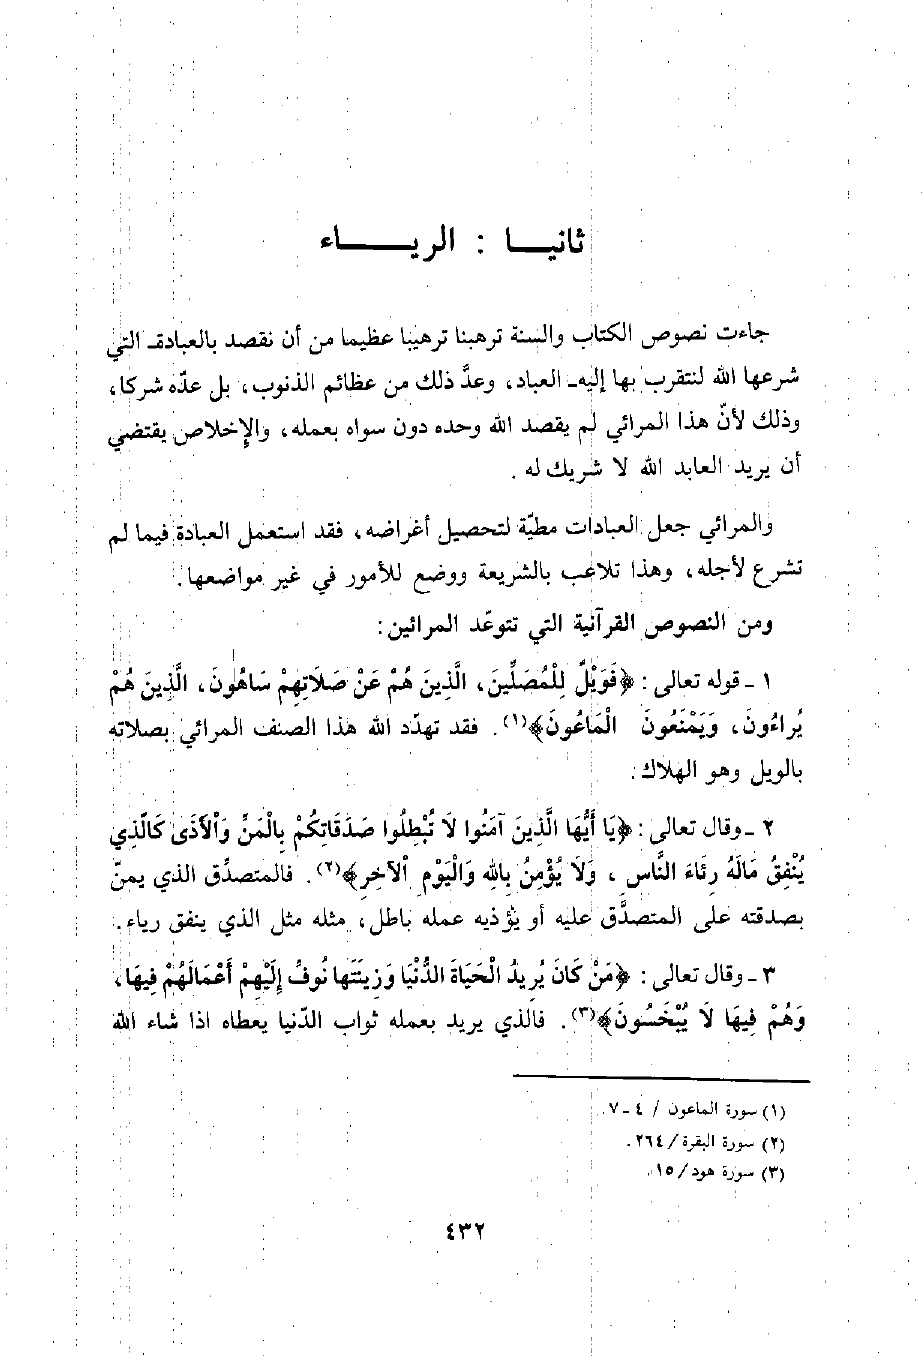 ثانيـــا : الريـــــاء
جاءت نصوص الكتاب والسنة ترهبنا ترهيبا عظيما من أن نقصد بالعبادة ـ التي
شرعها الله لنتقرب بها إليه ـ العباد، وعدَّ ذلك من عظائم الذنوب، بل عدّه شركا،
وذلك لأنّ هذا المرائي لم يقصد الله وحده دون سواه بعمله، والإخلاص يقتضي
أن يريد العابد الله لا شريك له .
والمرائي جعل العبادات مطيّة لتحصيل أغراضه، فقد استعمل العبادة فيما لم
تشرع لأجله، وهذا تلاعب بالشريعة ووضع للأمور في غير مواضعها.
ومن النصوص القرآنية التي تتوعّد المرائين:
١ ـ قوله تعالى : ﴿فَوَيْلٌ لِلْمُصَلِّينَ، الَّذِينَ هُمْ عَنْ صَلَاتِهِمْ سَاهُونَ، الَّذِينَ هُمْ
يُراءُونَ، وَيَمْنَعُونَ الْمَاعُونَ﴾(١). فقد تهدّد الله هذا الصنف المرائي بصلاته
بالويل وهو الهلاك.
٢ ـ وقال تعالى : ﴿يَا أَيُّهَا الَّذِينَ آمَنُوا لَا تُبْطِلُوا صَدَقَاتِكُمْ بِالْمَنِّ وَالْأَذَى كَالَّذِي
يُنْفِقُ مَالَهُ رِئَاءَ النَّاسِ ، وَلَا يُؤْمِنُ بِاللهِ وَالْيَوْمِ الْآخِرِ﴾(٢). فالمتصدِّق الذي يمنّ
بصدقته على المتصدَّق عليه أو يؤذيه عمله باطل، مثله مثل الذي ينفق رياء.
٣ ـ وقال تعالى : ﴿مَنْ كَانَ يُرِيدُ الْحَيَاةَ الدُّنْيَا وَزِينَتَها نُوَفِّ إِلَيْهِمْ أَعْمَالَهُمْ فِيهَا،
وَهُمْ فِيهَا لَا يُبْخَسُونَ﴾(٣). فالذي يريد بعمله ثواب الدّنيا يعطاه اذا شاء الله
(١) سورة الماعون / ٤ ـ ٧.
(٢) سورة البقرة / ٢٦٤.
(٣) سورة هود / ١٥.
٤٣٢